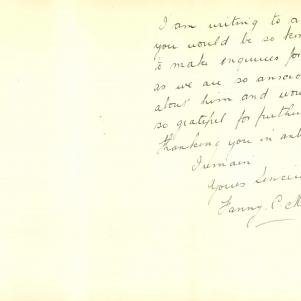 I am writing to a
you would be so kin
to make enquiries for
as we are so anxio
about him and wou
so grateful for furthe
thanking you in ant
I remain
Yours Sincer
Fanny. C. M